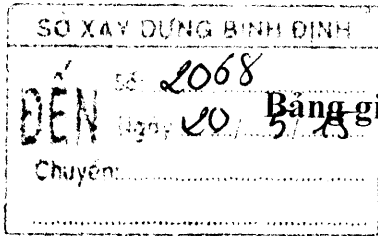 SỞ XÂY DỰNG BÌNH ĐỊNH
ĐẾN
Số: 2068
Ngày 20/5/15
Bảng gi
Chuyển: